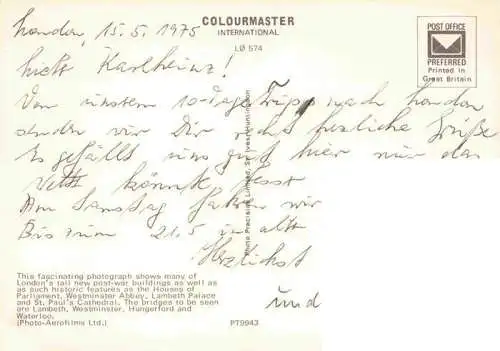 London, 15.5.1975
COLOURMASTER
INTERNATIONAL
LØ 574
POST OFFICE
PREFERRED
Printed in
Great Britain
Karlheinz!
Von unserm 10-Tage Tripp nach London
senden wir Dir recht herzliche Grüße
Es gefällt uns gut hier nur das
könnte
Am Samstag fahren wir
Bis zum 21.5 in alt
Herzlichst
und
Photo Precision Limited, St. Ives, Huntingdon
This fascinating photograph shows many of
London's tall new post-war buildings as well as
as such historic features as the Houses of
Parliament, Westminster Abbey, Lambeth Palace
and St. Paul's Cathedral. The bridges to be seen
are Lambeth, Westminster, Hungerford and
Waterloo.
(Photo-Aerofilms Ltd.)
PT9943